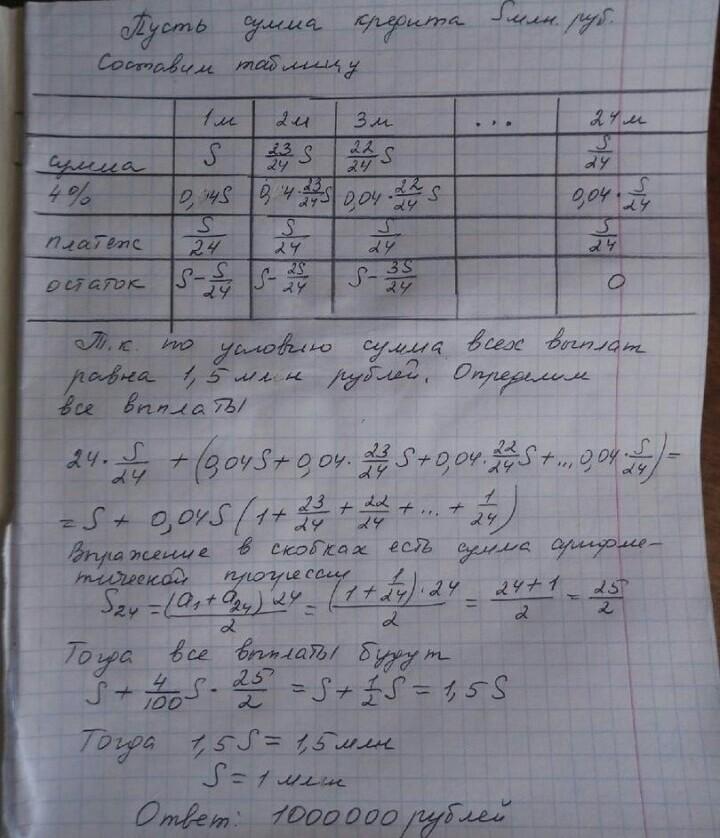 Пусть сумма кредита S млн. руб.
Составим таблицу
1м 2м 3м ... 24м
сумма S 23/24 S 22/24 S S/24
4% 0,04S 0,04·23/24 S 0,04·22/24 S 0,04·S/24
платеж S/24 S/24 S/24 S/24
остаток S-S/24 S-2S/24 S-3S/24 0
Т.к. по условию сумма всех выплат
равна 1,5 млн рублей. Определим
все выплаты
24·S/24 + (0,04S+0,04·23/24 S+0,04·22/24 S+...0,04·S/24)=
=S+ 0,04S(1+23/24+22/24+...+1/24)
Выражение в скобках есть сумма арифме-
тической прогрессии
S24=(a1+a24)·24/2=(1+1/24)·24/2=24+1/2=25/2
Тогда все выплаты будут
S+4/100 S·25/2=S+1/2 S=1,5S
Тогда 1,5S=1,5 млн
S=1 млн
Ответ: 1000000 рублей